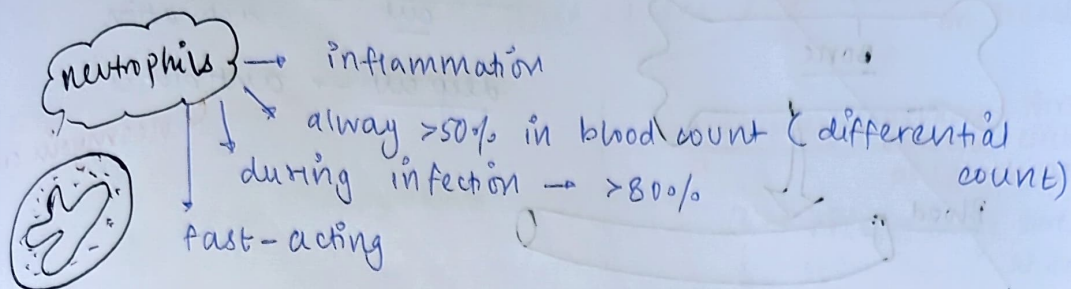 neutrophils → inflammation
alway >50% in blood count (differential
count)
during infection → >80%
fast-acting